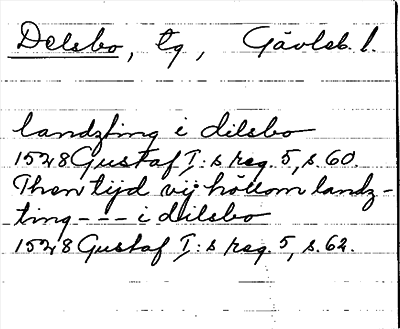 Delsbo, tg, Gävleb. l.
landzting i dilsbo
1528 Gustaf I:s reg. 5, s. 60.
Then tijd vij höllom landz-
ting --- i dilsbo
1528 Gustaf I:s reg. 5, s. 62.